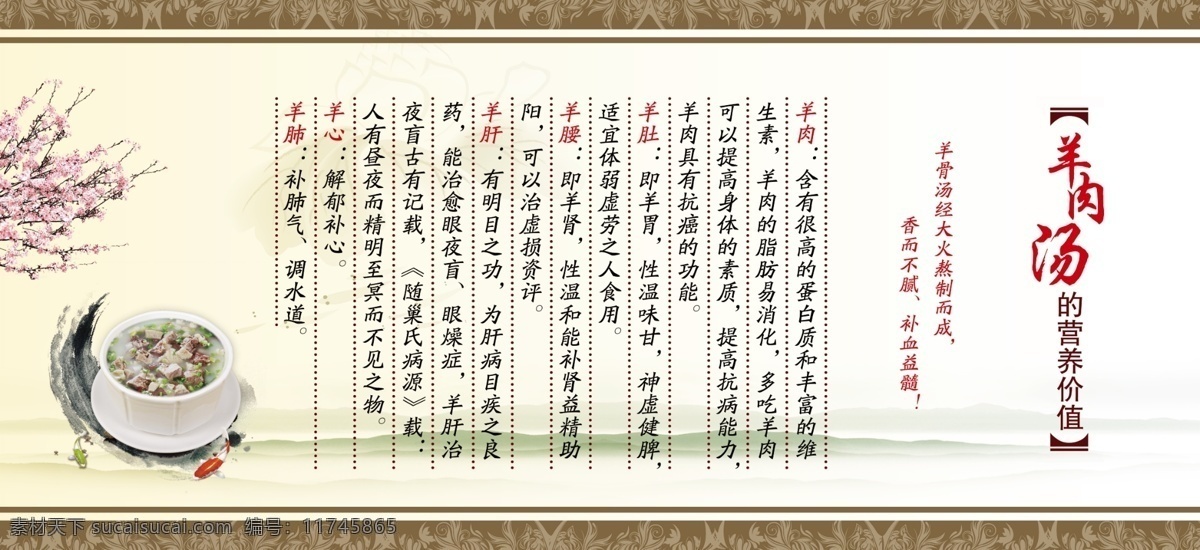 【羊肉汤的营养价值】
羊骨汤经大火熬制而成，
香而不腻、补血益髓！
羊肉：含有很高的蛋白质和丰富的维
生素，羊肉的脂肪易消化，多吃羊肉
可以提高身体的素质，提高抗病能力，
羊肉具有抗癌的功能。
羊肚：即羊胃，性温味甘，神虚健脾，
适宜体弱虚劳之人食用。
羊腰：即羊肾，性温和能补肾益精助
阳，可以治虚损资评。
羊肝：有明目之功，为肝病目疾之良
药，能治愈眼夜盲、眼燥症，羊肝治
夜盲古有记载，《随巢氏病源》载：
人有昼夜而精明至冥而不见之物。
羊心：解郁补心。
羊肺：补肺气、调水道。
素材天下 sucaisucai.com 编号：11745865